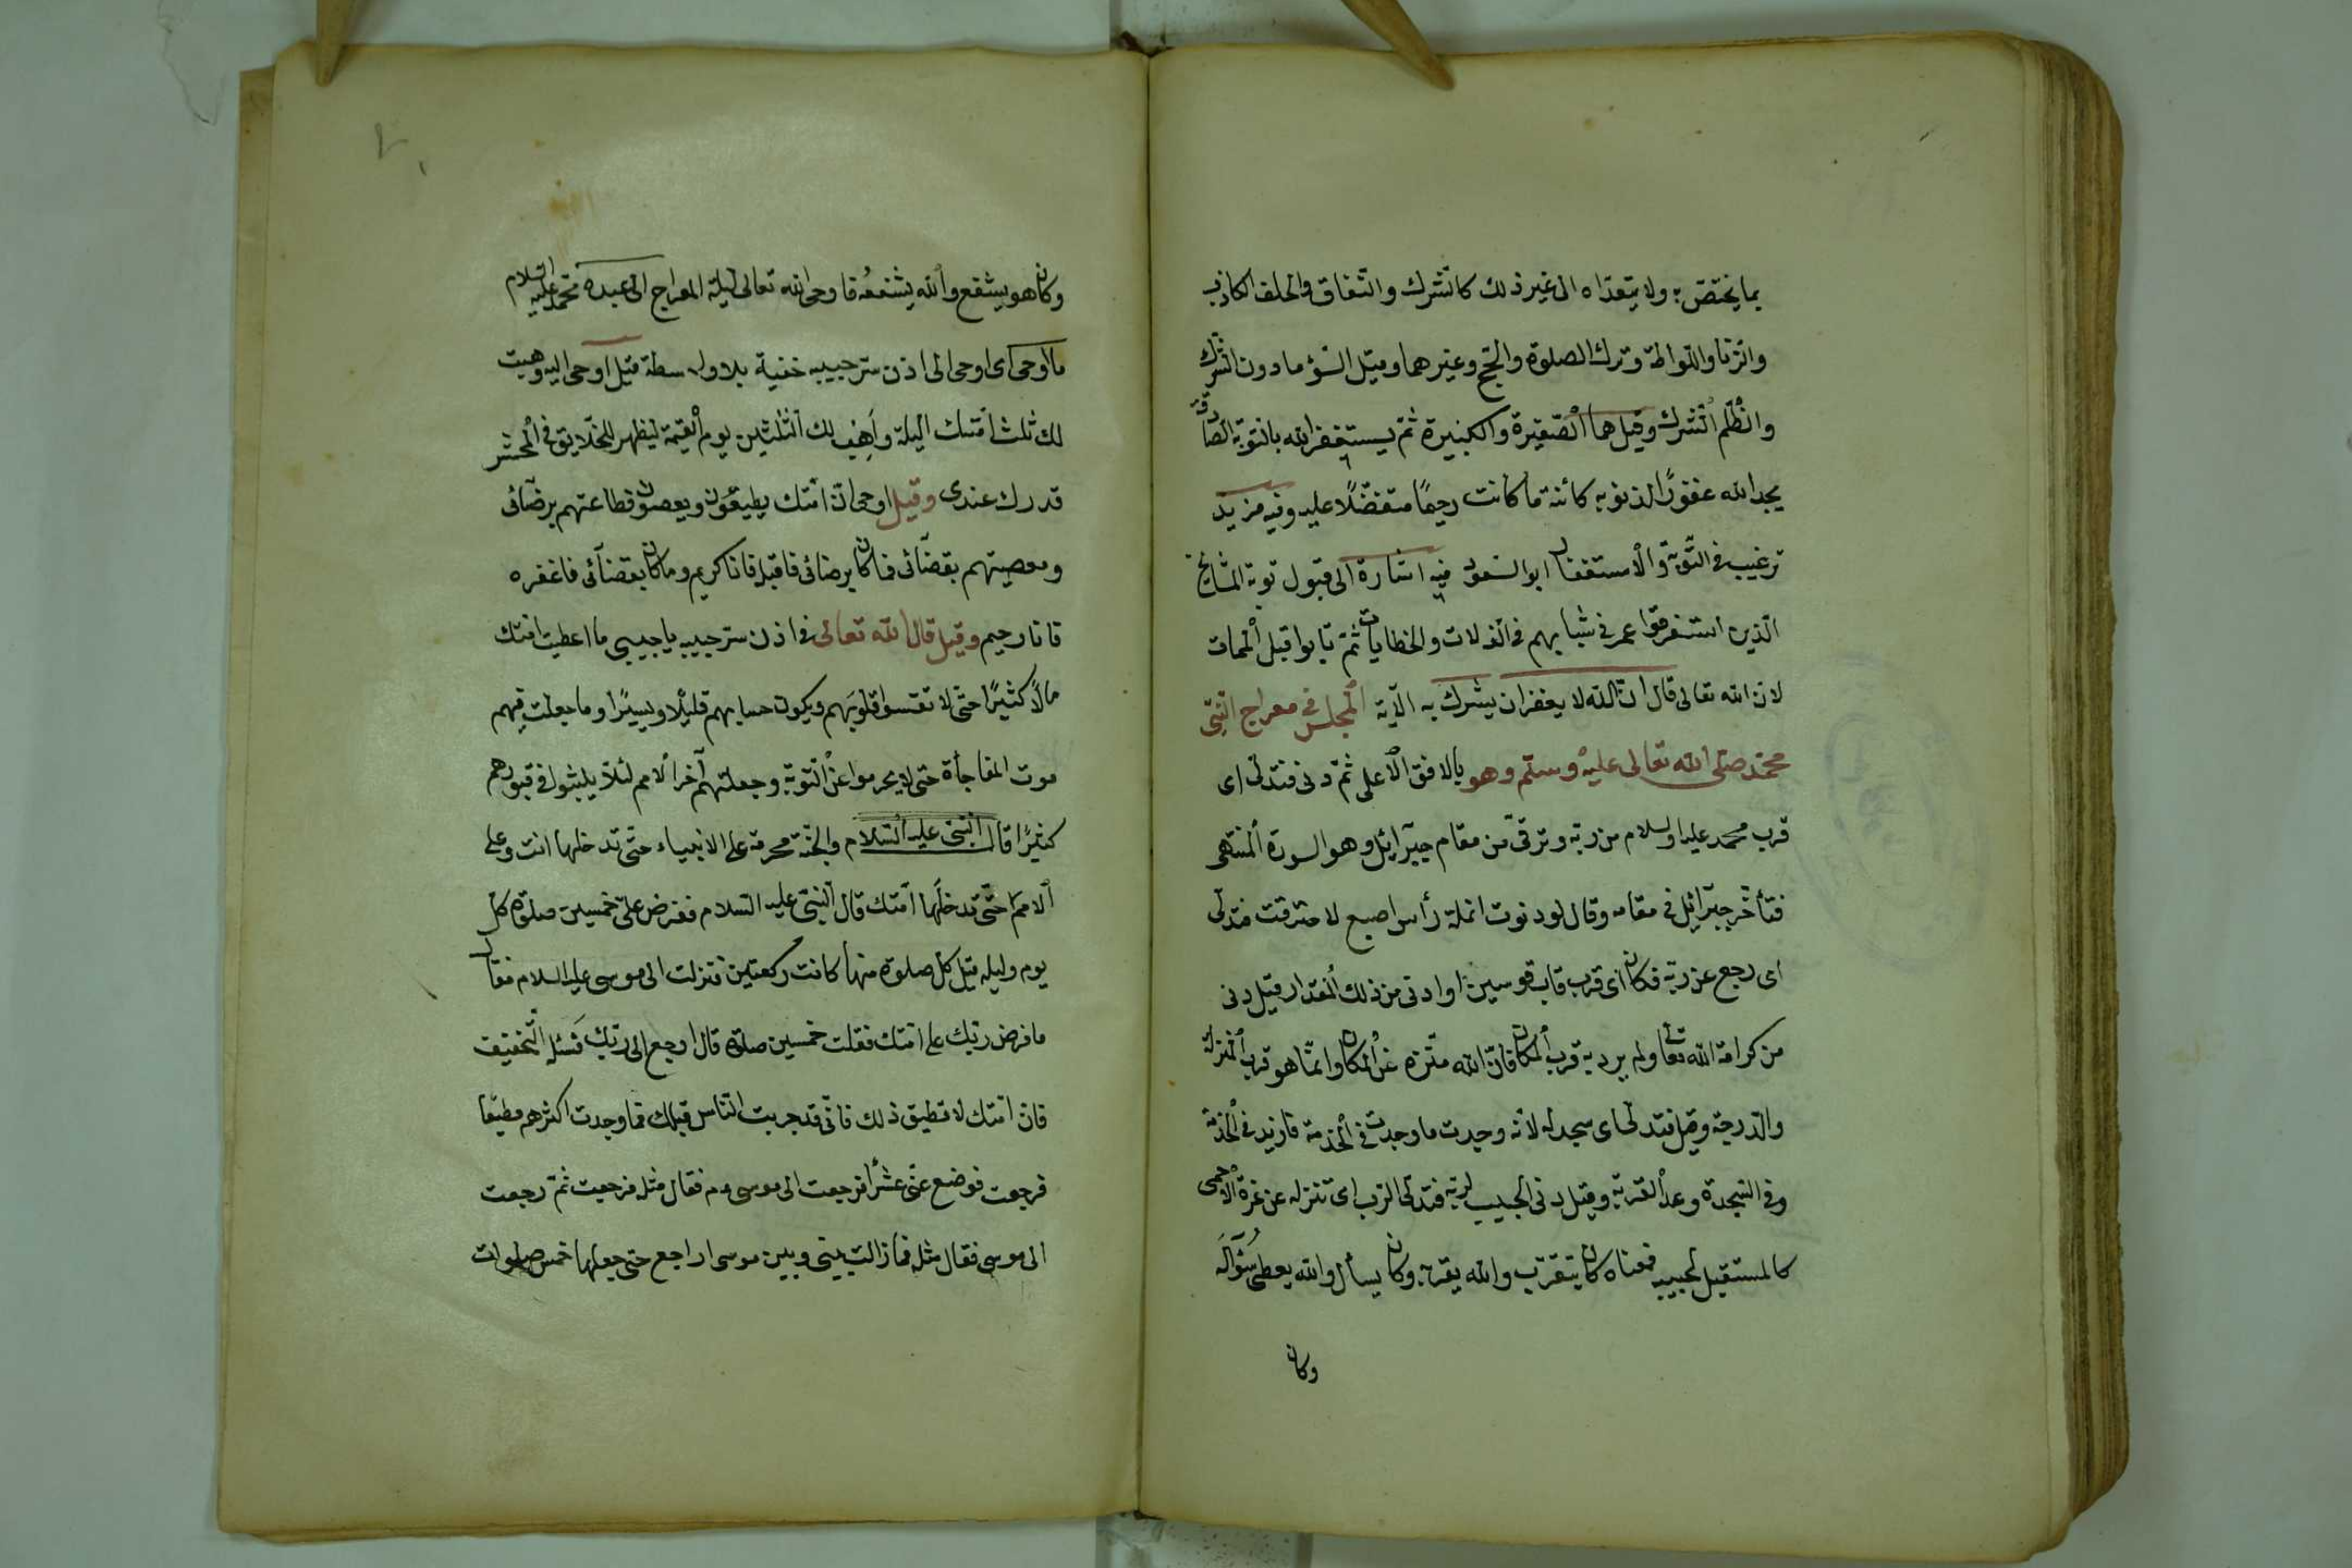 بما يختص به ولا يتعداه الى غير ذلك كالشرك والنفاق والحلف الكاذب
والزنا واللواطة وترك الصلوة والحج وغيرهما وقيل السؤ مادون الشرك
والظلم الشرك وقيل هما الصغيرة والكبيرة ثم يستغفر الله بالتوبة الصادقة
يجد الله غفورًا لذنوبه كائنة ما كانت رحيمًا متفضلًا عليه وفيه مزيد
ترغيب في التوبة والاستغفار ابو السعود فيه اشارة الى قبول توبة المشايخ
الذين استغرقوا عمر في شبابهم في الذلات والخطايات ثم تابوا قبل الممات
لان الله تعالى قال ان الله لا يغفر ان يشرك به الآية المجلس في معراج النبى
محمد صلى الله تعالى عليه وسلم وهو بالافق الاعلى ثم دنى فتدلى اى
قرب محمد عليه السلام من ربه وترقى من مقام جبرائيل وهو السدرة المنتهى
فتأخر جبرائيل في مقامه وقال لو دنوت انملة رأس اصبع لاحترقت فتدلى
اى رجع عن ربه فكان اى قرب قاب قوسين او ادنى من ذلك المقدار قيل دنى
من كرامة الله تعالى ولم يرد به قرب المكان فان الله منزه عن المكان وانما هو قرب المنزلة
والدرجة وقيل فتدلى اى سجد له لانه وجدت ما وجدت في الخدمة فازيد في الخدمة
وفي السجدة وعد القربة وقيل دنى الحبيب لربه فتدلى الرب اى تنزله عن غرة الاحمى
كالمستقبل لحبيبه فمعناه كان يتقرب والله يقربه وكان يسأل والله يعطى سؤاله
وكان
وكان هو يشفع والله يشفعه فاوحى الله تعالى ليلة المعراج الى عبده محمد عليه السلام
ما اوحى اى اوحى الى اذن ستر حبيبه خفية بلا واسطة قيل اوحى اليه وهبت
لك ثلث امتك الليلة واهب لك الثلثين يوم القيمة ليظهر للخلايق في المحشر
قدرك عندى وقيل اوحى ان امتك يطيعون ويعصون فطاعتهم برضائى
ومعصيتهم بقضائى فما كان برضائى فاقبله فانا كريم وما كان بقضائى فاغفره
فانا رحيم وقيل قال الله تعالى في اذن ستر حبيبه يا حبيبى ما اعطيت امتك
مالًا كثيرًا حتى لا تقسوا قلوبهم ويكون حسابهم قليلًا ويسيرًا وما جعلت فيهم
موت المفاجأة حتى لا يحرموا عن التوبة وجعلتهم آخر الامم لئلا يلبثوا في قبورهم
كثيرًا قال النبى عليه السلام والجنة محرمة على الانبياء حتى تدخلها انت وعلى
الامم حتى تدخلها امتك قال النبى عليه السلام ففرض على خمسين صلوة كل
يوم وليله قيل كل صلوة منها كانت ركعتين فنزلت الى موسى عليه السلام فقال
ما فرض ربك على امتك فقلت خمسين صلوة قال ارجع الى ربك فسئله التخفيف
فان امتك لا تطيق ذلك فانى قد جربت الناس قبلك فما وجدت اكثرهم مطيعًا
فرجعت فوضع عنى عشرًا فرجعت الى موسى عم فقال مثله فرجعت ثم رجعت
الى موسى فقال مثله فما زالت بينى وبين موسى اراجع حتى جعلها خمس صلوات